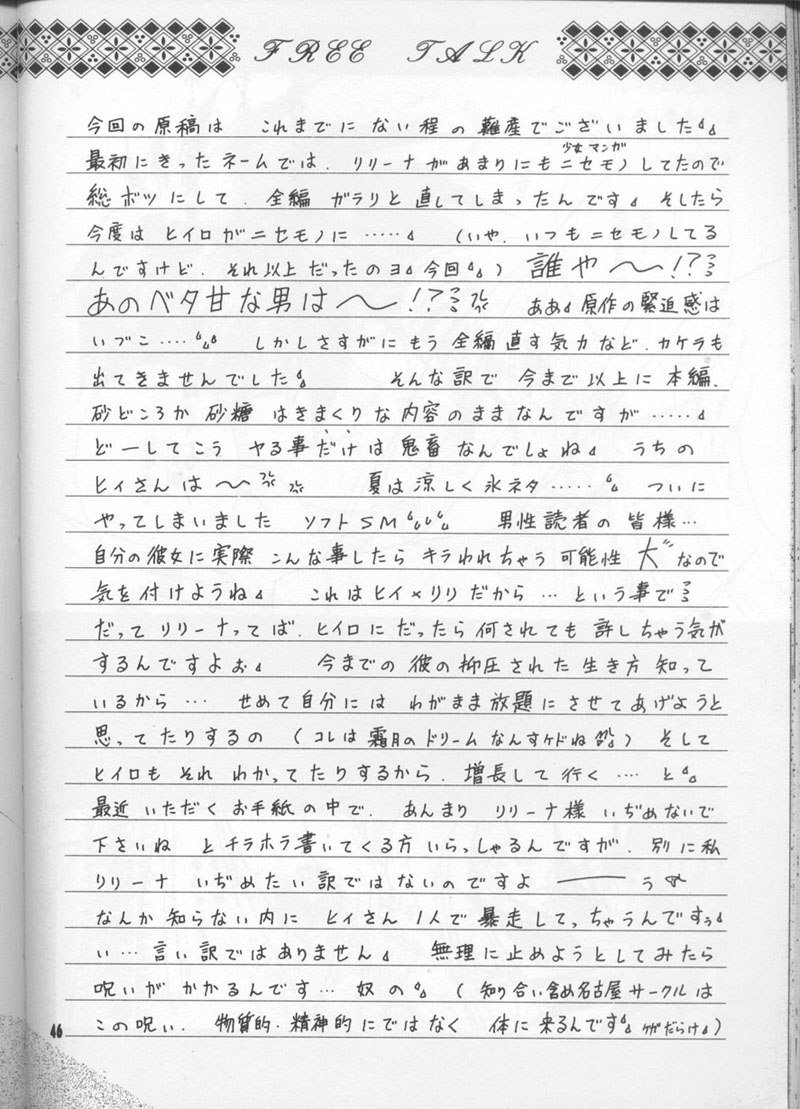 FREE TALK
今回の原稿は これまでに ない程の 難産でございました
少女マンガ
最初にきったネームでは、リリーナがあまりにもニセモノしてたので
総ボツにして、全編 ガラリと直してしまったんです そしたら
今度は ヒイロがニセモノに…… (いや、いつもニセモノしてる
んですけど、それ以上だったのヨ 今回) 誰や〜!?
あのベタ甘な男は〜!? ああ 原作の緊迫感は
いづこ…… しかしさすがにもう 全編直す気力など、カケラも
出てきませんでした そんな訳で 今まで以上に 本編、
砂どころか 砂糖 はきまくりな内容のままなんですが……
どーしてこう ヤる事だけは 鬼畜 なんでしょね うちの
ヒイさんは〜 夏は涼しく氷ネタ…… ついに
やってしまいました ソフトSM 男性読者の 皆様…
自分の彼女に実際 こんな事したら キラわれちゃう 可能性 大 なので
気を付けようね これはヒイ×リリだから… という事で
だって リリーナってば、ヒイロにだったら何されても 許しちゃう気が
するんですよぉ 今までの 彼の抑圧された生き方 知って
いるから… せめて自分には わがまま放題にさせてあげようと
思ってたりするの (コレは 霜月のドリーム なんすケドね) そして
ヒイロも それ わかってたりするから、増長して行く …… と
最近 いただく お手紙の中で、あんまり リリーナ様 いぢめないで
下さいね とチラホラ書いてくる方 いらっしゃるんですが、別に私
リリーナ いぢめたい訳ではないのですよ ── う
なんか 知らない内に ヒイさん 1人で 暴走してっちゃうんですぅ
い… 言い訳ではありません 無理に止めようとしてみたら
呪いが かかるんです… 奴の (知り合い含め名古屋サークルは
この呪い、物質的・精神的にではなく 体に来るんです ケガだらけ)
46